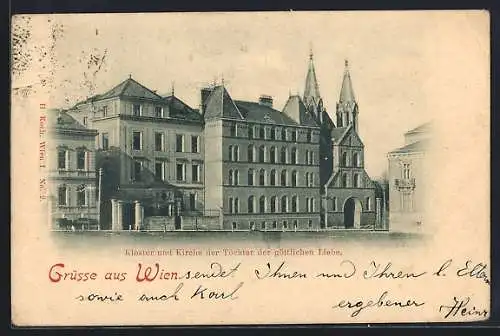 H Koch, Wien I. No. 9.
Kloster und Kirche der Töchter der göttlichen Liebe.
Grüsse aus Wien. sendet Ihnen und Ihren l. Ella
sowie auch Karl
ergebener Heinr